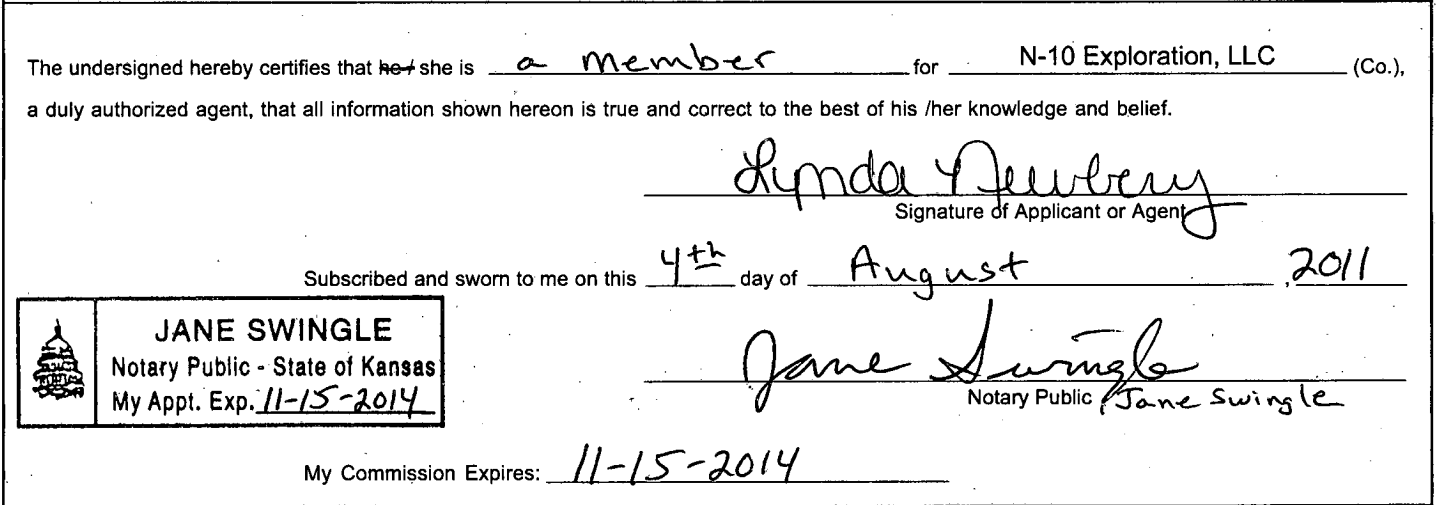 The undersigned hereby certifies that he / she is a member for N-10 Exploration, LLC (Co.),
a duly authorized agent, that all information shown hereon is true and correct to the best of his /her knowledge and belief.
Lynda Newbery
Signature of Applicant or Agent
Subscribed and sworn to me on this 4th day of August ,2011
JANE SWINGLE
Notary Public - State of Kansas
My Appt. Exp. 11-15-2014
Jane Swingle
Notary Public , Jane Swingle
My Commission Expires: 11-15-2014